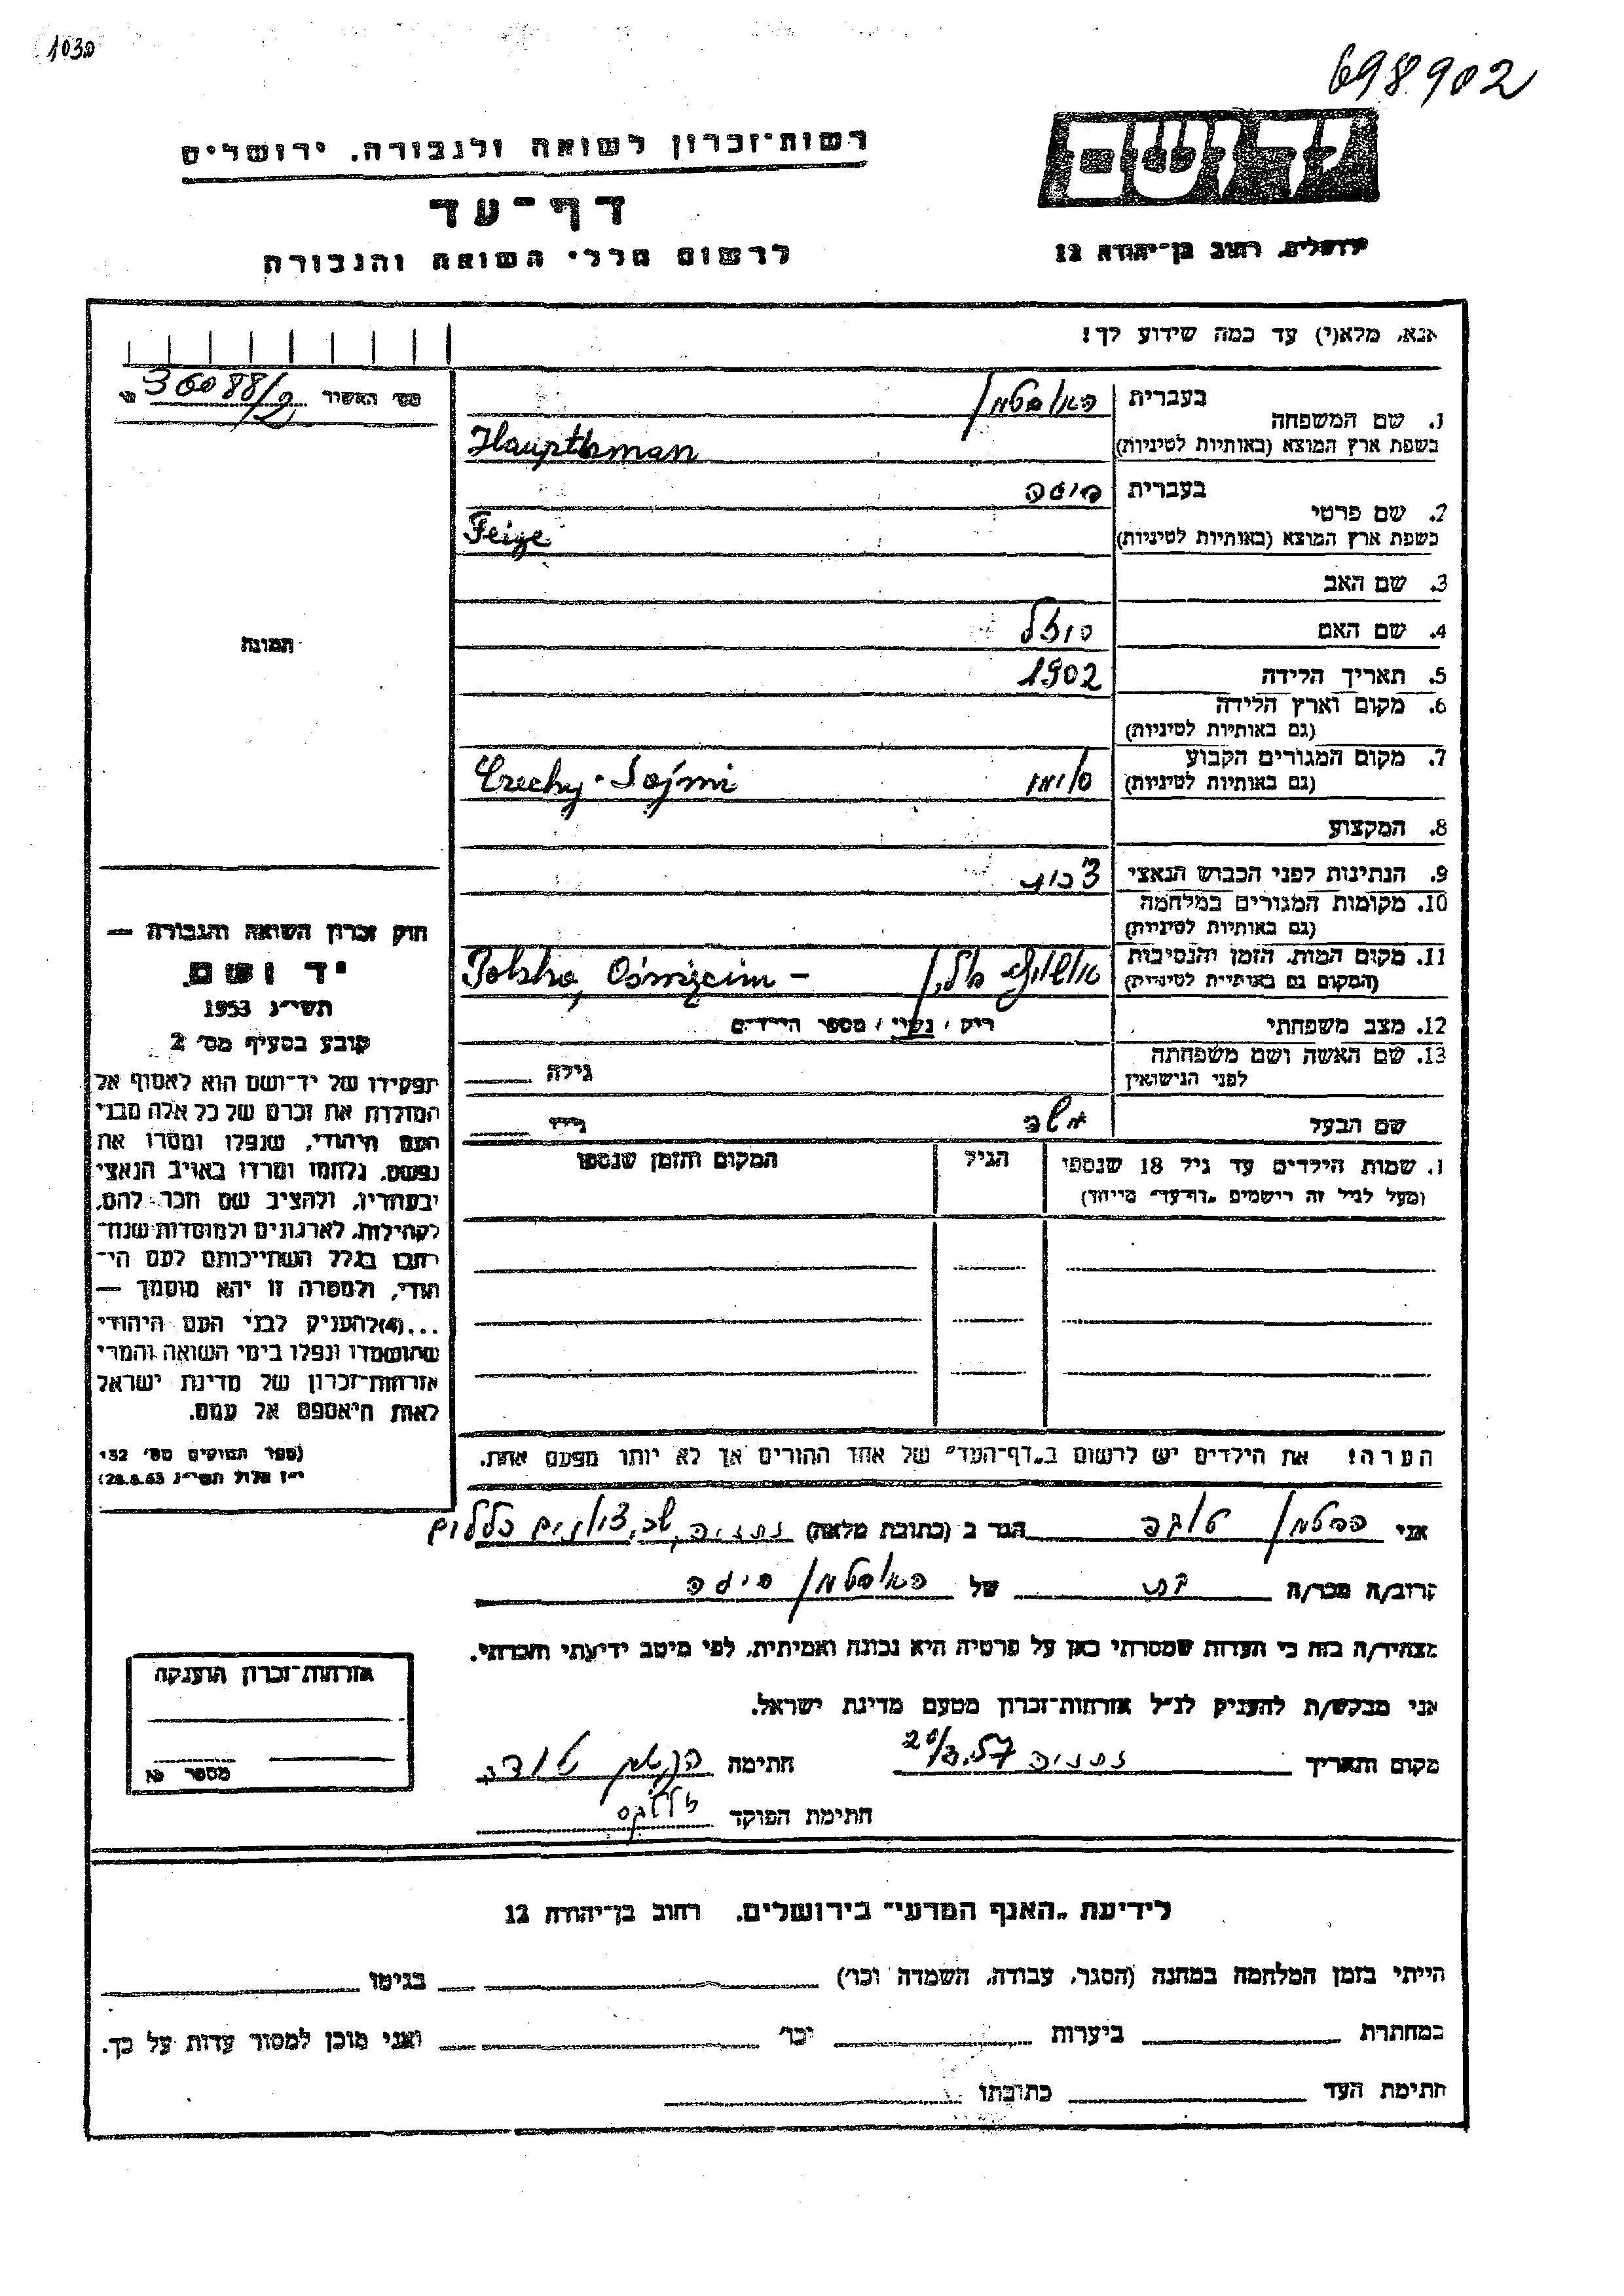 103פ
698902
רשות־זכרון לשואה ולגבורה. ירושלים
יד ושם
דף־עד
לרשום חללי השואה והגבורה
ירושלים, רחוב בן־יהודה 12
אנא, מלא(י) עד כמה שידוע לך!
מס' האשיר 36088/2
1. שם המשפחה בעברית האופטמן
בשפת ארץ המוצא (באותיות לטיניות) Haupthman
2. שם פרטי בעברית
בשפת ארץ המוצא (באותיות לטיניות) Feige
3. שם האב
4. שם האם
תמונה
5. תאריך הלידה 1902
6. מקום וארץ הלידה
(גם באותיות לטיניות)
7. מקום המגורים הקבוע
(גם באותיות לטיניות) Czechy-
8. המקצוע
9. הנתינות לפני הכבוש הנאצי
10. מקומות המגורים במלחמה
(גם באותיות לטיניות)
11. מקום המות, הזמן והנסיבות
(המקום גם באותיות לטיניות) אושוויץ פולין Polska, Oświęcim -
12. מצב משפחתי רוק / נשוי / מספר הילדים
13. שם האשה ושם משפחתה
לפני הנישואין גילה
שם הבעל אשר גילו
חוק זכרון השואה והגבורה —
יד ושם
תשי״ג 1953
קובע בסעיף מס' 2
תפקידו של יד־ושם הוא לאסוף אל
המולדת את זכרם של כל אלה מבני
העם היהודי, שנפלו ומסרו את
נפשם, נלחמו ומרדו באויב הנאצי
ובעוזריו, ולהציב שם וזכר להם,
לקהילות, לארגונים ולמוסדות שנח־
רבו בגלל השתייכותם לעם הי־
הודי, ולמטרה זו יהא מוסמך —
...(4) להעניק לבני העם היהודי
שהושמדו ונפלו בימי השואה והמרי
אזרחות־זכרון של מדינת ישראל
לאות היאספם אל עמם.
(ספר החוקים מס' 132
י״ז אלול תשי״ג 28.8.53)
1. שמות הילדים עד גיל 18 שנספו הגיל המקום והזמן שנספו
(מעל לגיל זה רושמים „דף־עד״ מיוחד)
הערה! את הילדים יש לרשום ב„דף־העד״ של אחד ההורים אך לא יותר מפעם אחת.
אני טובה הגר ב (כתובת מלאה) נתניה, שכ.
קרוב/ה מכר/ה בת של האופטמן פיגה
מצהיר/ה בזה כי העדות שמסרתי כאן על פרטיה היא נכונה ואמיתית, לפי מיטב ידיעתי והכרתי.
אני מבקש/ת להעניק לנ״ל אזרחות־זכרון מטעם מדינת ישראל.
מקום ותאריך נתניה 57 חתימה
חתימת הפוקד
אזרחות־זכרון הוענקה
מספר
לידיעת „האגף המדעי״ בירושלים. רחוב בן־יהודה 12
הייתי בזמן המלחמה במחנה (הסגר, עבודה, השמדה וכו') בגיטו
במחתרת ביערות וכו' ואני מוכן למסור עדות על כך.
חתימת העד כתובתו